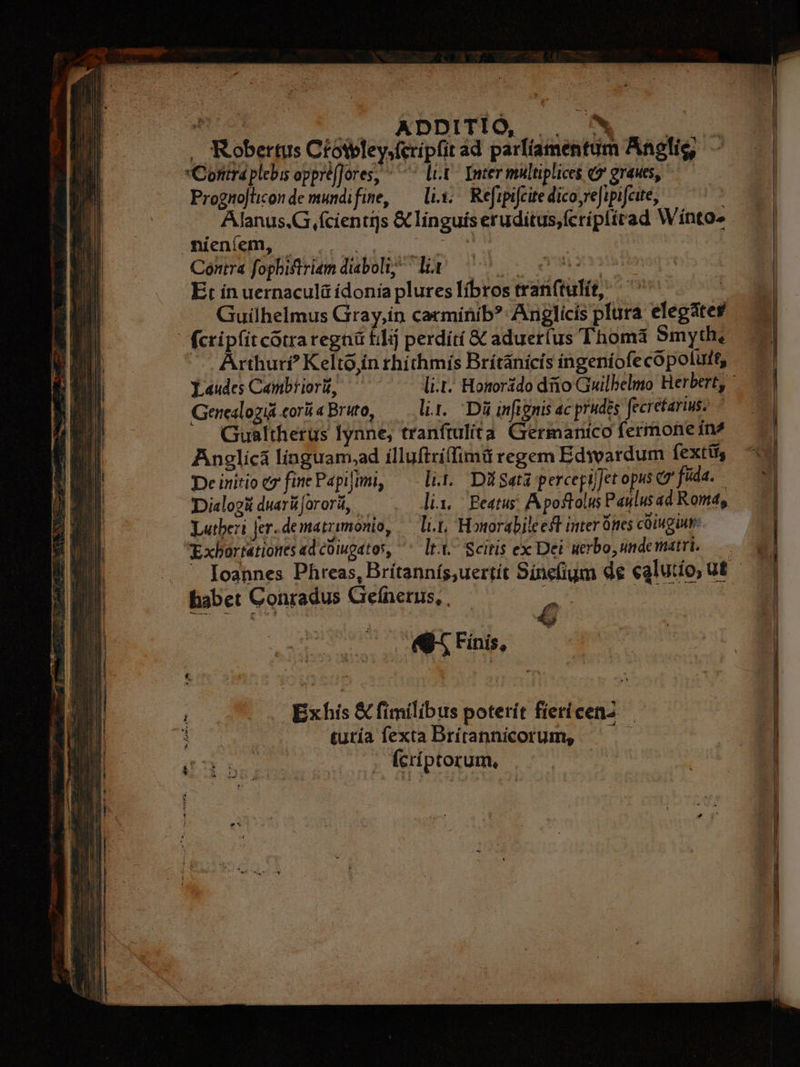 ADDITIO,
Robertus Crowley,ſcripſit ad parliamentum Anglię,
Contra plebis oppreſſores, li.1. Inter multiplices & graues,
Prognoſticon de mundi fine, li.1. Reſipiſcite dico,reſipiſcite,
Alanus.G,ſcientijs & linguis eruditus,ſcripſit ad Winto-
nienſem,
Contra ſophiſtriam diaboli, li.1
Et in uernaculū idonia plures libros tranſtulit,
Guilhelmus Gray,in carminibꝰ Anglicis plura elegāter
ſcripſit cōtra regnū filij perditi & aduerſus Thomā Smyth,
Arthurꝰ Keltō,in rhithmis Britānicis ingenioſe cōpoſuit,
Laudes Cambriorū, li.1. Honorādo dño Guilhelmo Herbert,
Genealogiā eorū a Bruto, li.1. Dū inſignis ac prudēs ſecretarius.
Gualtherus lynne, tranſtulit a Germanico ſermone in
Anglicā linguam,ad illuſtriſſimū regem Edwardum ſextū,
De initio & fine Papiſmi, li.1. Dū Satā percepiſſet opus & fūda.
Dialogū duarū ſororū, li.1. Beatus Apoſtolus Paulus ad Roma,
Lutheri ſer. de matrimonio, li.1. Honorabile eſt inter ōnes cōiugium
Exhortationes ad cōiugatos, li.1. Scitis ex Dei uerbo,unde matri.
Ioannes Phreas, Britannis,uertit Sineſium de caluitio, ut
habet Conradus Geſnerus,
Finis,
Ex his & ſimilibus poterit fieri cen-
turia ſexta Britannicorum,
ſcriptorum,